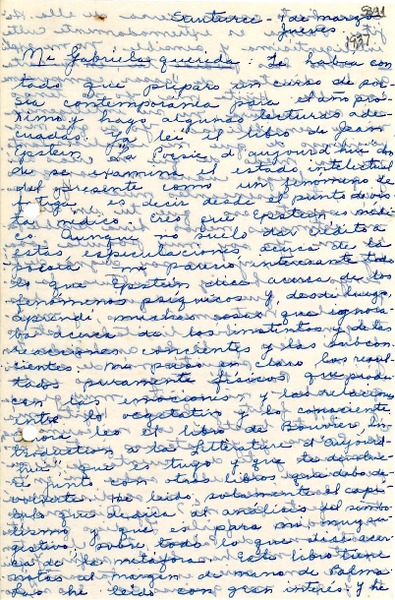 Santurce - 1 de marzo
Jueves
Mi Gabriela querida: Te había con
tado que preparo un curso de poe
sía contemporánea para el año pró
ximo y hago algunas lecturas ade
cuadas. Ya leí el libro de Jean
Epstein "La Poésie d'aujourd'hui" don
de se examina el estado intelectual
del presente como un fenómeno de
fatiga, es decir desde el punto de vis
ta médico. Creo que Epstein es médi
co. Aunque no suelo dar crédito a
estas especulaciones acerca de la
poesía me pareció interesante todo
lo que Epstein dice acerca de los
fenómenos psíquicos y, desde luego,
aprendí muchas cosas que ignora
ba acerca de los instintos y de las
reacciones concientes y las subcon
cientes. Me puso en claro los resul
tados puramente físicos que produ
cen las emociones y las relaciones
entre lo vegetativo y lo consciente
Ahora leo el libro de Bouvier, In
troduction a la Littérature d'Aujourd'
hui" que es tuyo y que te devolve
ré junto con otros libros que debo de
volverte. He leído solamente el capí
tulo que dedica al análisis del simbo
lismo y que es para mí muy su
gestivo, sobre todo lo que dice acer
ca de la metáfora. Este libro tiene
notas al margen de mano de Palma
Lo he leído con gran interés. Y he